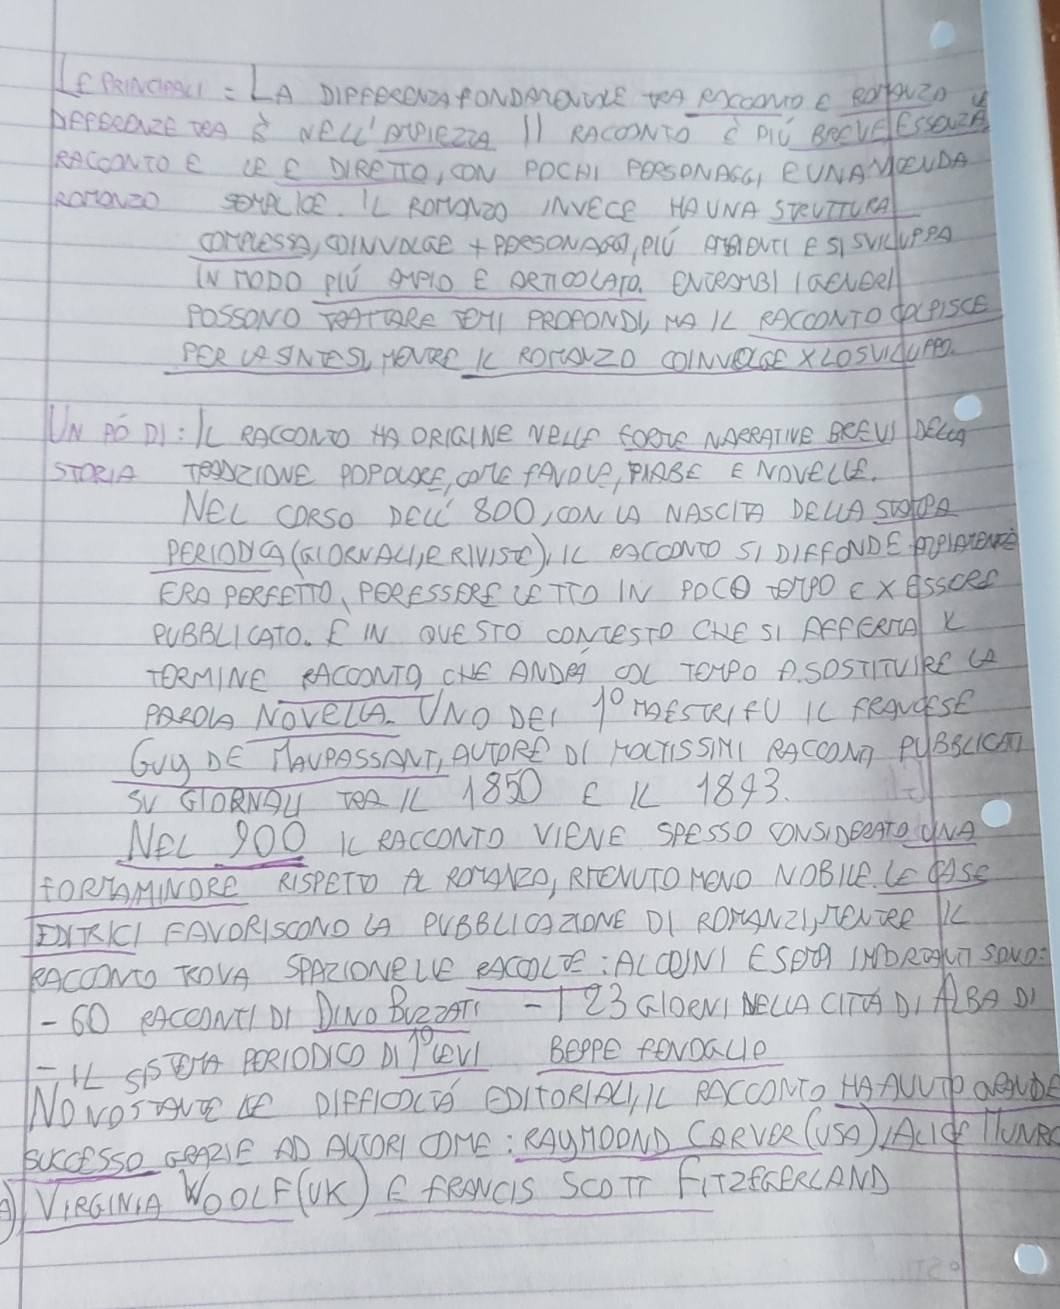 LE PRINCIPALI : LA DIFFERENZA FONDAMENTALE TRA RACCONTO E ROMANZO
DIFFERENZE TRA È NELL'AMPIEZZA Il RACCONTO È PIÙ BREVE ESSENZA
RACCONTO E LE E DIRETTO, CON POCHI PERSONAGGI E UNA VICENDA
ROMANZO SEMPLICE. IL ROMANZO INVECE HA UNA STRUTTURA
COMPLESSA, COINVOLGE + PERSONAGGI, PIÙ AMBIENTI E SI SVILUPPA
IN MODO PIÙ AMPIO E ARTICOLATO. ENTRAMBI I GENERI
POSSONO TRATTARE TEMI PROFONDI, MA IL RACCONTO COLPISCE
PER LA SINTESI, MENTRE IL ROMANZO COINVOLGE X LO SVILUPPO.
UN PÒ DI : IL RACCONTO HA ORIGINE NELLE FORME NARRATIVE BREVI DELLA
STORIA TRADIZIONE POPOLARE, COME FAVOLE, FIABE E NOVELLE.
NEL CORSO DELL' 800, CON LA NASCITA DELLA STAMPA
PERIODICA (GIORNALI, E RIVISTE), IL RACCONTO SI DIFFONDE AMPIAMENTE
ERA PERFETTO, PER ESSERE LETTO IN POCO TEMPO E X ESSERE
PUBBLICATO. È IN QUESTO CONTESTO CHE SI AFFERMA IL
TERMINE RACCONTO, CHE ANDRÀ COL TEMPO A SOSTITUIRE LA
PAROLA NOVELLA. UNO DEI 1° MAESTRI FU IL FRANCESE
GUY DE MAUPASSANT, AUTORE DI MOLTISSIMI RACCONTI PUBBLICATI
SU GIORNALI TRA IL 1850 E IL 1893.
NEL 900 IL RACCONTO VIENE SPESSO CONSIDERATO UNA
FORMA MINORE RISPETTO AL ROMANZO, RITENUTO MENO NOBILE. LE CASE
EDITRICI FAVORISCONO LA PUBBLICAZIONE DI ROMANZI, MENTRE IL
RACCONTO TROVA SPAZIO NELLE RACCOLTE : ALCUNI ESEMPI IMPORTANTI SONO:
- 60 RACCONTI DI DINO BUZZATI - I 23 GIORNI NELLA CITTÀ DI ALBA DI
- IL SISTEMA PERIODICO DI 1° LEVI BEPPE FENOGLIO
NONOSTANTE LE DIFFICOLTÀ EDITORIALI, IL RACCONTO HA AVUTO GRANDE
SUCCESSO GRAZIE AD AUTORI COME : RAYMOOND CARVER (USA), ALICE MUNRO
A) VIRGINIA WOOLF (UK) E FRANCIS SCOTT FITZEGERLAND